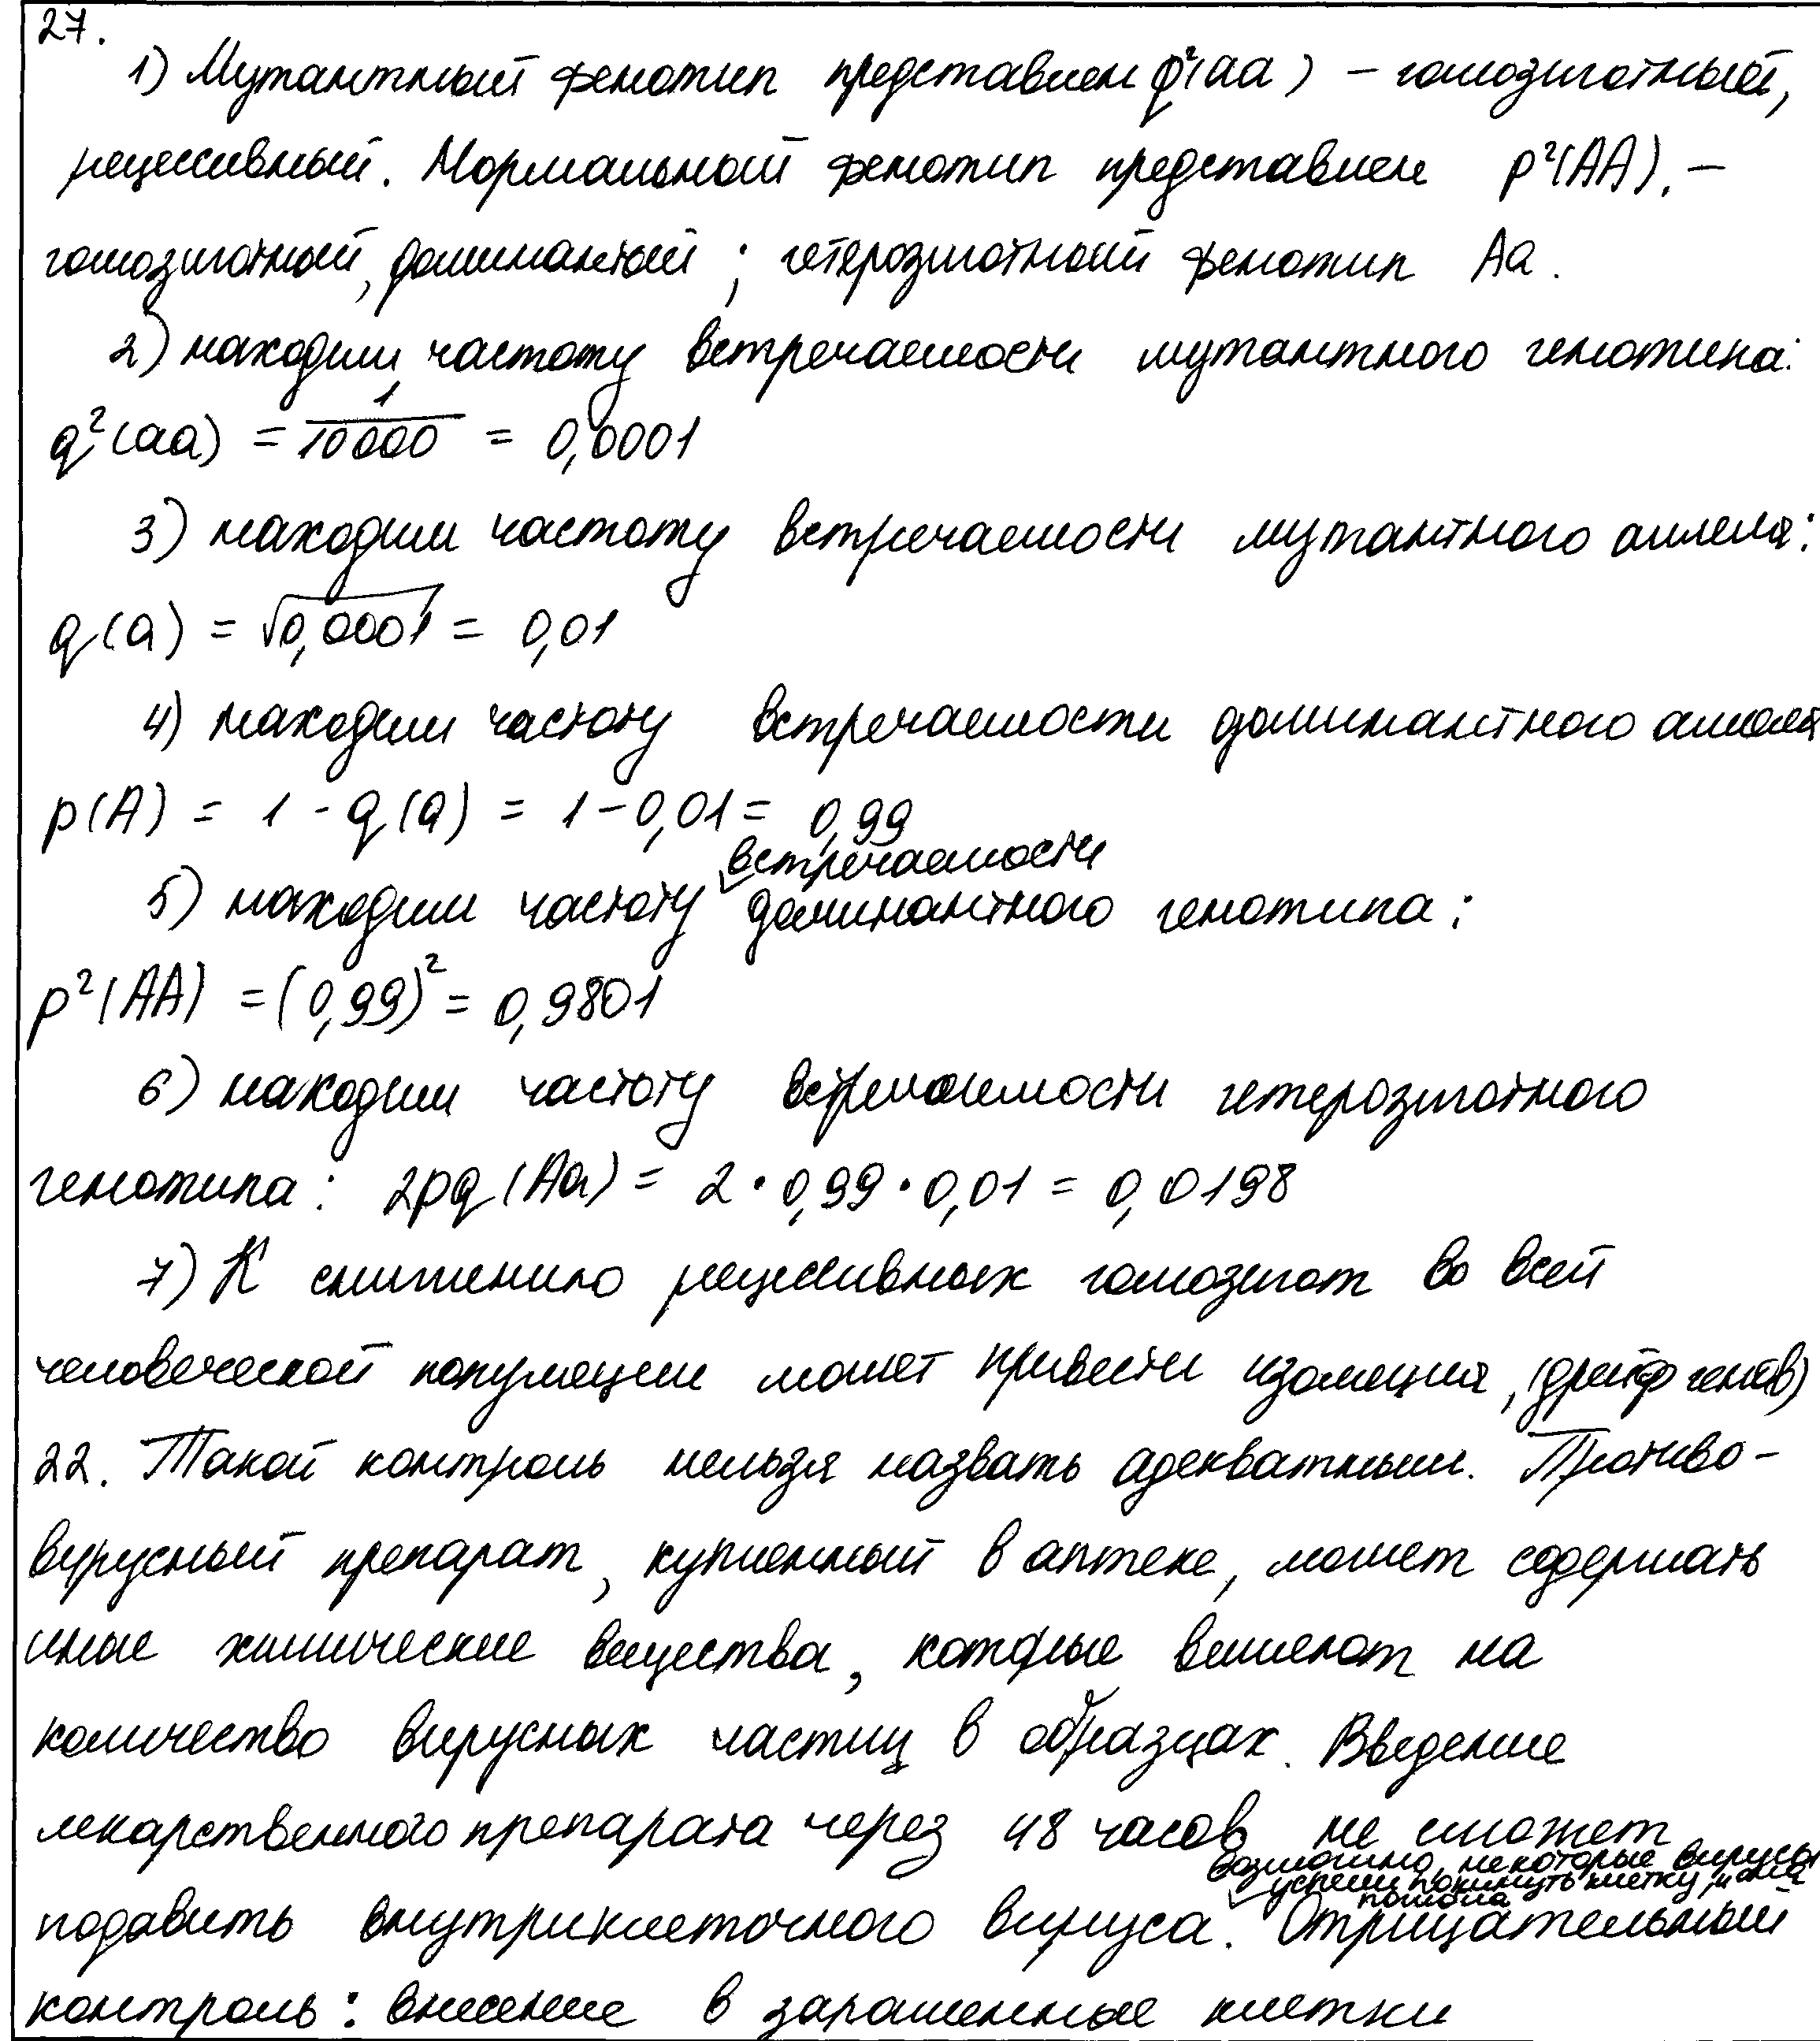 27.
1) Мутантный фенотип представлен q²(aa) – гомозиготный,
рецессивный. Нормальный фенотип представлен p²(AA). –
гомозиготный, доминантный ; гетерозиготный фенотип Aa.
2) находим частоту встречаемости мутантного генотипа:
q²(aa) = 1/10000 = 0,0001
3) находим частоту встречаемости мутантного аллеля:
q(a) = √0,0001 = 0,01
4) находим частоту встречаемости доминантного аллеля
p(A) = 1 - q(a) = 1 - 0,01 = 0,99
встречаемости
5) находим частоту доминантного генотипа:
p²(AA) = (0,99)² = 0,9801
6) находим частоту встречаемости гетерозиготного
генотипа: 2pq(Aa) = 2·0,99·0,01 = 0,0198
7) К снижению рецессивных гомозигот во всей
человеческой популяции может привести изоляция, (дрейф генов)
22. Такой контроль нельзя назвать адекватным. Противо-
вирусный препарат, купленный в аптеке, может содержать
иные химические вещества, которые влияют на
количество вирусных частиц в образцах. Введение
лекарственного препарата через 48 часов не сможет
возможно, некоторые вирусы
успели покинуть клетку, и она
погибла
подавить внутриклеточного вируса. Отрицательный
контроль: внесение в зараженные клетки